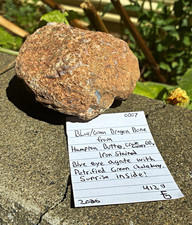 0007
Blue/Green Dragon Bone
from
Hampton Butte, OR
Iron Stained
Blue eye agate with
Petrified Green Chalcedony
Sunrise inside!
412g